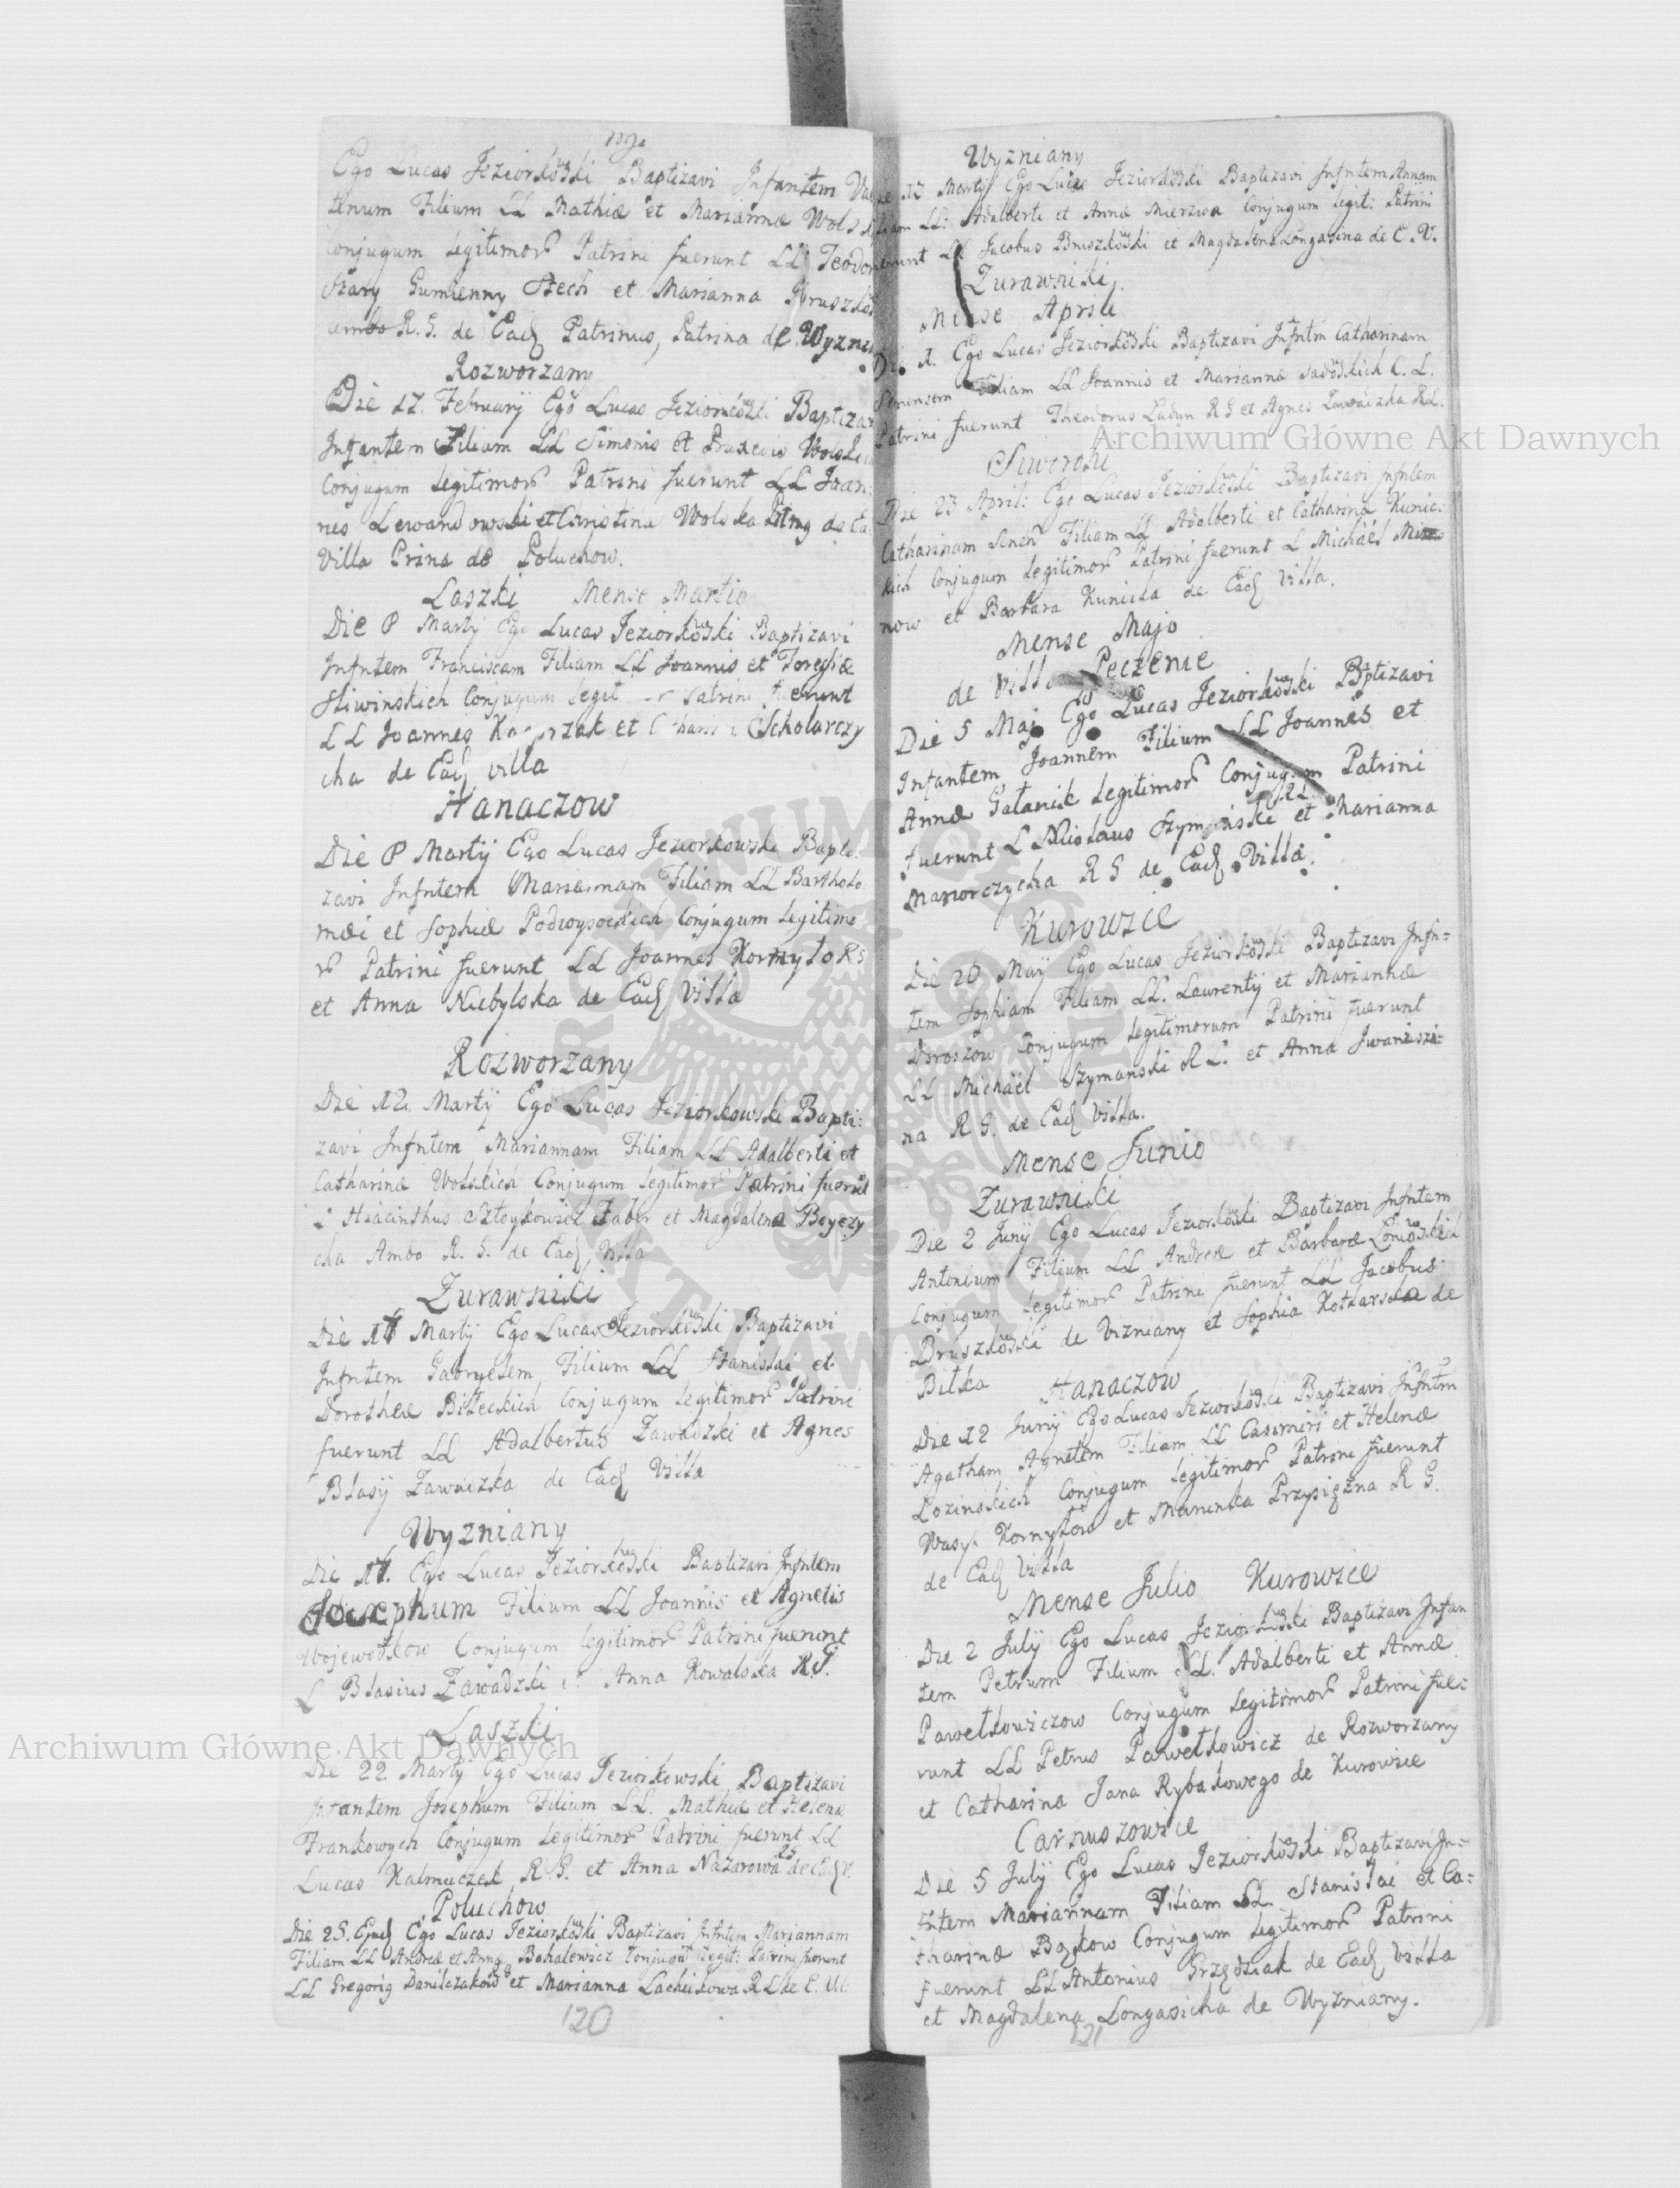 Ego Lucas Jeziorkowski Baptizavi Infantem Va
tinum Filium LL Mathiæ et Mariannæ Wols
Conjugum legitimor Patrini fuerunt LL Teodor
Stary Gumienny Stech et Marianna Bruszkow
ambo R. G. de Eaq Patrinus, Patrina de Wyzni
Rozworzany
Die 17. Februarÿ Ego Lucas Jeziorkowski Baptizav
Infantem Filiam LL Simonis et Praxedis Wolskich
Conjugum legitimor Patrini fuerunt LL Joan
nes Lewandowski et Christina Wolska de Ea
Villa Prina de Poluchow.
Laszki Mense Martio
Die Martÿ Ego Lucas Jeziorkowski Baptizavi
Infntem Franciscam Filiam LL Joannis et
Sliwinskich Conjugum legit Patrini fuerunt
LL Joannes et Scholarczy
cha de Eaq villa
Hanaczow
Die Martÿ Ego Lucas Jeziorkowski Bapti
zavi Infntem Mariannam Filiam LL Bartholo
mæi et Sophiæ Podwysockich Conjugum legitimo
r Patrini fuerunt LL Joannes Kornyło RG
et Anna Niebylska de Eaq Villa
Rozworzany
Die 12. Martÿ Ego Lucas Jeziorkowski Bapti:
zavi Infntem Mariannam Filiam LL Adalberti et
Catharinæ Wolskich Conjugum legitimor Patrini fuerut
L Hiacinthus Sztoykowicz Faber et Magdalena Beyczy
cha Ambo R. G. de Eaq Villa
Zurawniki
Die Martÿ Ego Lucas Jeziorkowski Baptizavi
Infntem Gabryelem Filium LL Stanislai et
Dorotheæ Biłeckich Conjugum legitimor Patrini
fuerunt LL Adalbertus Zawadzki et Agnes
Blasÿ Zawadzka de Eaq Villa
Wyzniany
Die Ego Lucas Jeziorkowski Baptizavi Infntem
Josephum Filium LL Joannis et Agnetis
Wojewodkow Conjugum legitimor Patrini fuerunt
L Blasius Zawadzki et Anna Kowalska R.G.
Laszki
Die 22. Martÿ Ego Lucas Jeziorkowski Baptizavi
Infantem Josephum Filium LL. Mathiæ et Helenæ
Frankowych Conjugum legitimor Patrini fuerunt LL
Lucas Kalmuczek R. G. et Anna Nazarowa de Eaq V.
Poluchow
Die 25. Ejusq Ego Lucas Jeziorkowski Baptizavi Infntem Mariannam
Filiam LL Andreæ et Annæ Bohalewicz Conjugu legit: Patrini fuerunt
LL Gregorig Danilczakow et Marianna Lachuikowa R L de E. Vil.
120
Wyzniany
Die 17 Martÿ Ego Lucas Jeziorkowski Baptizavi Infntem Annam
Filiam LL: Adalberti et Annæ Mierzwa Conjugum legit: Patrini
fuerunt LL Jacobus Bruszkowski et Magdalena Longasina de E. V.
Zurawniki
Mense Aprili
Die 1. Ego Lucas Jeziorkowski Baptizavi Infntm Catharinam
Senensem Filiam LL Joannis et Mariannæ Sadowskich C. L.
Patrini fuerunt Theodorus Ladun R G et Agnes Zawadzka R L.
Siworogi
Die 23 April: Ego Lucas Jeziorkowski Baptizavi Infntem
Catharinam Senen Filiam LL Adalberti et Catharinæ Kunic:
kich Conjugum legitimor Patrini fuerunt L Michäel
now et Barbara Kunicka de Eaq Villa.
Mense Majo
de Villa Peczenie
Die 5 Maj Ego Lucas Jeziorkowski Baptizavi
Infantem Joannem Filium LL Joannes et
Annæ Gałanik legitimor Conjugum Patrini
fuerunt L Nicolaus Szymański RL et Marianna
Manorczycha R G de Eaq Villa.
Kurowice
Die 20 Maÿ Ego Lucas Jeziorkowski Baptizavi Infn=
tem Sophiam Filiam LL. Laurentÿ et Mariannæ
Doroszow Conjugum legitimorum Patrini fuerunt
LL Michäel Szymanski R L. et Anna Jwaniszi=
na R G. de Eaq Villa.
Mense Junio
Zurawniki
Die 2 Junÿ Ego Lucas Jeziorkowski Baptizavi Infntem
Antonium Filium LL Andreæ et Barbaræ
Conjugum legitimor Patrini fuerunt LL Jacobus
Bruszkowski de Wizniany et Sophia Kotlarska de
Bilka
Hanaczow
Die 12 Junÿ Ego Lucas Jeziorkowski Baptizavi Infntm
Agatham Agnetem Filiam LL Casimiri et Helenæ
Lozinskich Conjugum legitimor Patrini fuerunt
Wasyl Kornyłow et Marinka Przysiężna R G.
de Eaq Villa
Mense Julio Kurowice
Die 2 Julÿ Ego Lucas Jeziorkowski Baptizavi Infan
tem Petrum Filium LL. Adalberti et Annæ
Pawełkowiczow Conjugum legitimor Patrini fue:
runt LL Petrus Pawełkowicz de Rozworzany
et Catharina Jana Rybakowego de Kurowice
Carnuszowice
Die 5 Julÿ Ego Lucas Jeziorkowski Baptizavi In=
fntem Mariannam Filiam LL. Stanislai et Ca=
tharinæ Bozkow Conjugum legitimor Patrini
fuerunt LL Antonius Grzędziak de Eaq Villa
et Magdalena Longasicha de Wyzniany.
121
Archiwum Główne Akt Dawnych
Archiwum Główne Akt Dawnych
ARCHIWUM GŁÓWNE AKT DAWNYCH